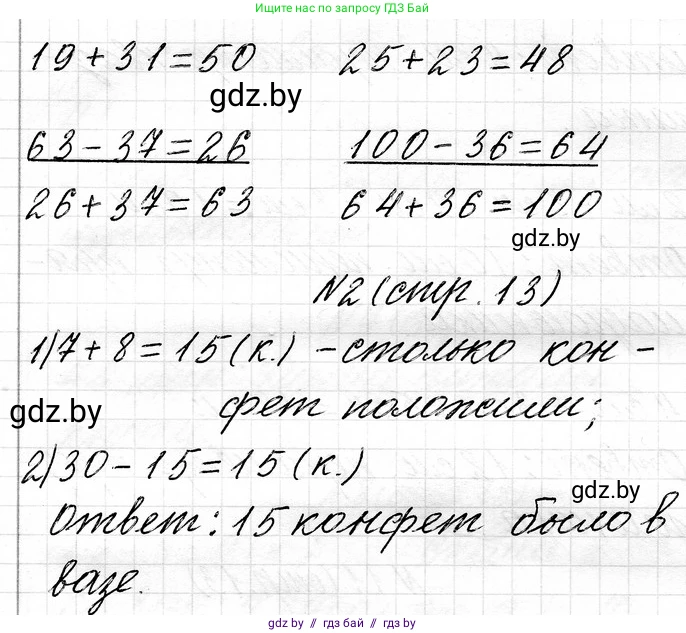 Ищите нас по запросу ГДЗ Бай
19+31=50 25+23=48
gdz.by
63-37=26 100-36=64
26+37=63 64+36=100
gdz.by
N2 (стр. 13)
1) 7+8=15 (к.) - столько кон-
gdz.by
фет положили;
2) 30-15=15 (к.)
gdz.by
Ответ: 15 конфет было в
вазе.
gdz.by // гдз бай // гдз.бай